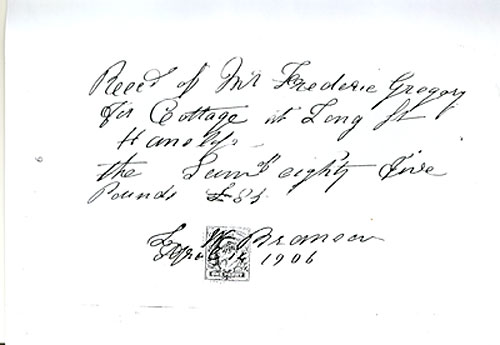 Recd of Mr Frederic Gregory
for Cottage at Long St
Hanslope
the Sum of eighty five
Pounds £85
W Branson
14 1906